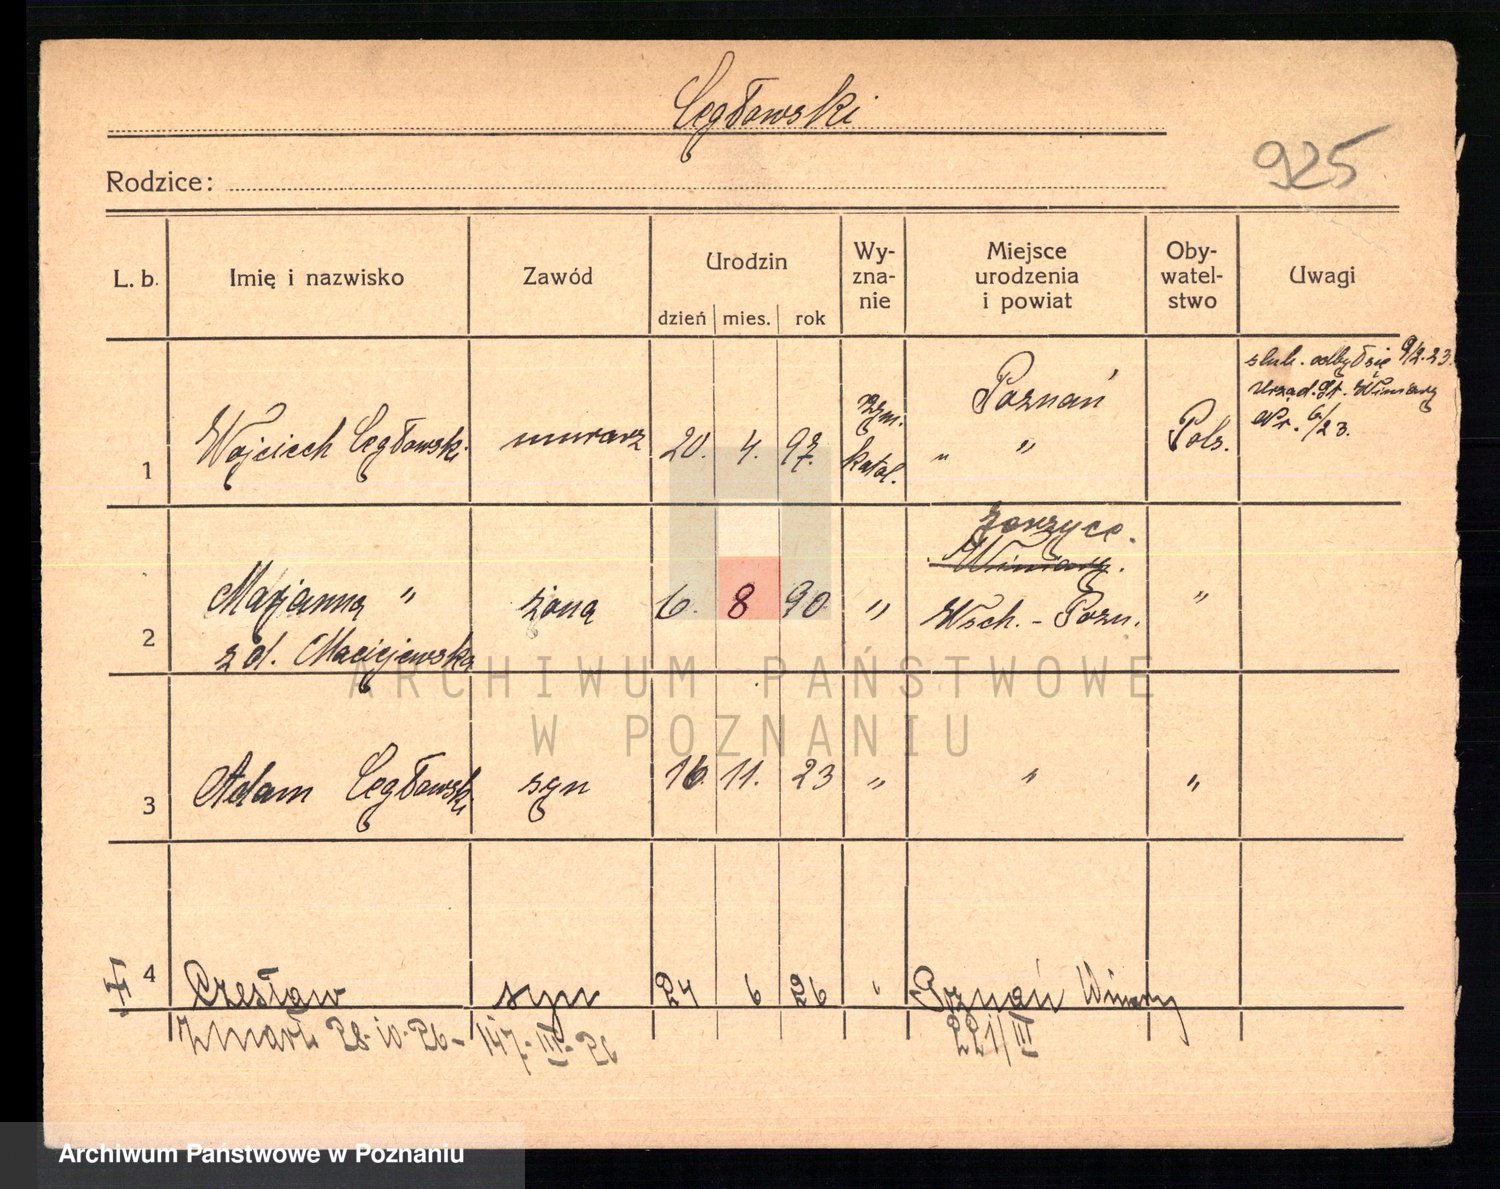 Cegłowski
925
Rodzice:
L. b. Imię i nazwisko Zawód Urodzin dzień mies. rok Wy-zna-nie Miejsce urodzenia i powiat Oby-watel-stwo Uwagi
1 Wojciech Cegłowski murarz 20. 4. 97. rzm. katol. Poznań " " Pols. slub. odbył się 9/2.23.
Urząd. St. Winiary
Nr. 6/23.
2 Marjanna " żona 6. 8 90 " Winiary. "
z d. Maciejewska Wsch. - Pozn.
3 Adam Cegłowski syn 16. 11. 23 " " "
4 Czesław syn 24 6 26 " Poznań Winiary
zmarł 28.10.26- 147-III-26 221/III
ARCHIWUM PAŃSTWOWE
W POZNANIU
Archiwum Państwowe w Poznaniu